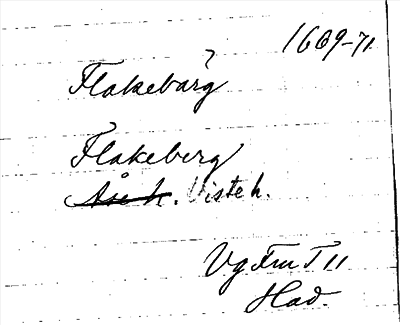 1669-71
Flakebärg
Flakeberg
Åse h. Viste h.
Vg Fru T 11
Had.